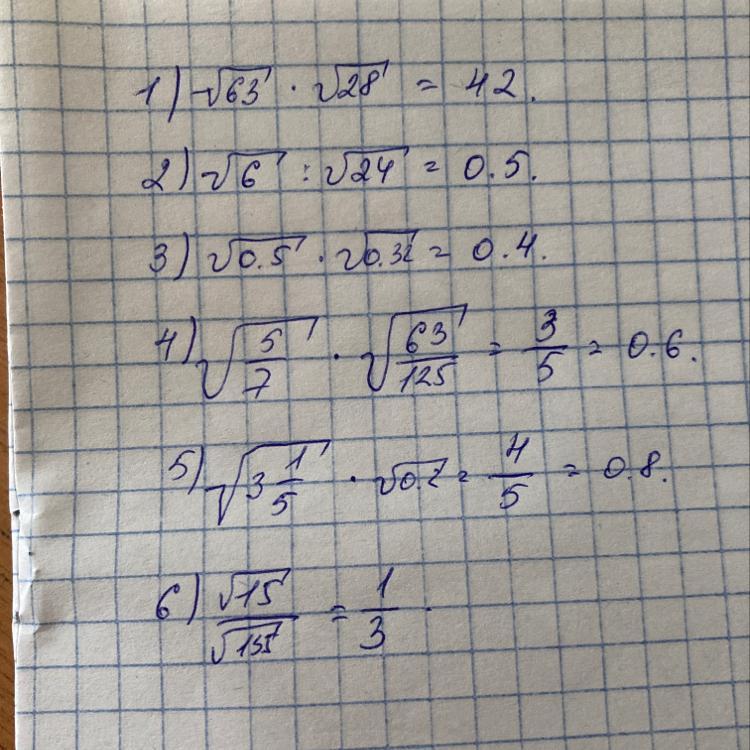 1) √63 · √28 = 42.
2) √6 : √24 = 0.5.
3) √0.5 · √0.32 = 0.4.
4) √(5/7) · √(63/125) = 3/5 = 0.6.
5) √(3 1/5) · √0.2 = 4/5 = 0.8.
6) √15/√135 = 1/3.